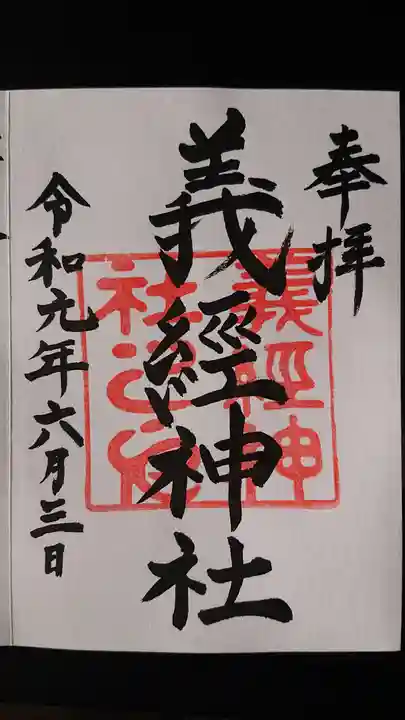 奉拝
義經神社
義經神
社
令和元年六月三日